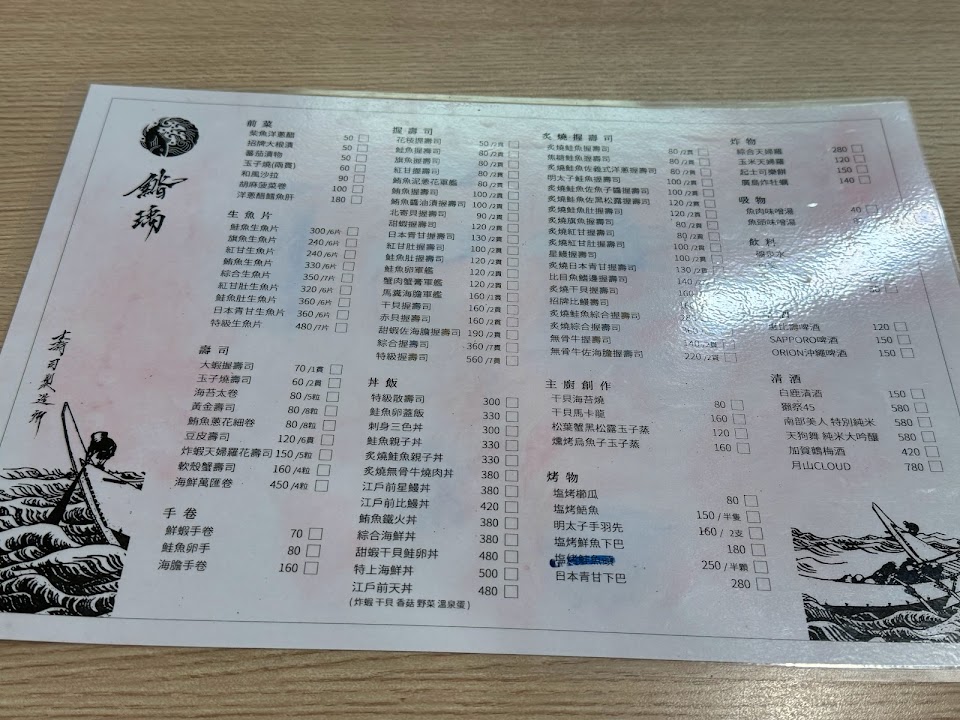 鮨璃
壽司製造所
前菜
柴魚洋蔥醋 50
招牌大根漬 50
番茄漬物 50
玉子燒(兩貫) 60
和風沙拉 90
胡麻菠菜卷 100
洋蔥醋鱈魚肝 180
生魚片
鮭魚生魚片 300/6片
旗魚生魚片 240/6片
紅甘生魚片 240/6片
鮪魚生魚片 330/6片
綜合生魚片 350/7片
紅甘肚生魚片 320/6片
鮭魚肚生魚片 360/6片
日本青甘生魚片 360/6片
特級生魚片 480/7片
壽司
大蝦握壽司 70/1貫
玉子燒壽司 60/2貫
海苔太卷 80/5粒
黃金壽司 80/8粒
鮪魚蔥花細卷 80/8粒
豆皮壽司 120/6貫
炸蝦天婦羅花壽司 150/5粒
軟殼蟹壽司 160/4粒
海鮮萬匯卷 450/4粒
手卷
鮮蝦手卷 70
鮭魚卵手 80
海膽手卷 160
握壽司
花枝握壽司 50/2貫
鮭魚握壽司 80/2貫
旗魚握壽司 80/2貫
紅甘握壽司 80/2貫
鮪魚泥蔥花軍艦 80/2貫
鮪魚握壽司 100/2貫
鮪魚醬油漬握壽司 100/2貫
北寄貝握壽司 90/2貫
甜蝦握壽司 120/2貫
日本青甘握壽司 130/2貫
紅甘肚握壽司 100/2貫
鮭魚肚握壽司 120/2貫
鮭魚卵軍艦 120/2貫
蟹肉蟹膏軍艦 120/2貫
馬糞海膽軍艦 160/1貫
干貝握壽司 160/2貫
赤貝握壽司 160/2貫
甜蝦佐海膽握壽司 190/2貫
綜合握壽司 360/7貫
特級握壽司 560/7貫
丼飯
特級散壽司 300
鮭魚卵蓋飯 330
刺身三色丼 300
鮭魚親子丼 330
炙燒鮭魚親子丼 330
炙燒無骨牛燒肉丼 380
江戶前星鰻丼 380
江戶前比鰻丼 420
鮪魚鐵火丼 380
綜合海鮮丼 380
甜蝦干貝鮭卵丼 480
特上海鮮丼 500
江戶前天丼 480
(炸蝦 干貝 香菇 野菜 溫泉蛋)
炙燒握壽司
炙燒鮭魚握壽司 80/2貫
焦糖鮭魚握壽司 80/2貫
炙燒鮭魚佐義式洋蔥握壽司 80/2貫
明太子鮭魚握壽司 100/2貫
炙燒鮭魚佐魚子醬握壽司 120/2貫
炙燒鮭魚佐黑松露握壽司 120/2貫
炙燒鮭魚肚握壽司 120/2貫
炙燒旗魚握壽司 80/2貫
炙燒紅甘握壽司 80/2貫
炙燒紅甘肚握壽司 100/2貫
星鰻握壽司 100/2貫
炙燒日本青甘握壽司 130/2貫
比目魚鰭邊握壽司 140
炙燒干貝握壽司
招牌比鰻壽司
炙燒鮭魚綜合握壽司
炙燒綜合握壽司
無骨牛握壽司 140/2貫
無骨牛佐海膽握壽司 220/2貫
主廚創作
干貝海苔燒 80
干貝馬卡龍 160
松葉蟹黑松露玉子蒸 120
燻烤烏魚子玉子蒸 160
烤物
塩烤櫛瓜 80
塩烤鯃魚 150/半隻
明太子手羽先 160/2支
塩烤鮮魚下巴 180
250/半顆
日本青甘下巴 280
炸物
綜合天婦羅 280
玉米天婦羅 120
起士可樂餅 150
廣島炸牡蠣 140
吸物
魚肉味噌湯 40
魚頭味噌湯
飲料
120
SAPPORO啤酒 150
ORION沖繩啤酒 150
清酒
白鹿清酒 150
獺祭45 580
南部美人 特別純米 580
天狗舞 純米大吟釀 580
加賀鶴梅酒 420
月山CLOUD 780